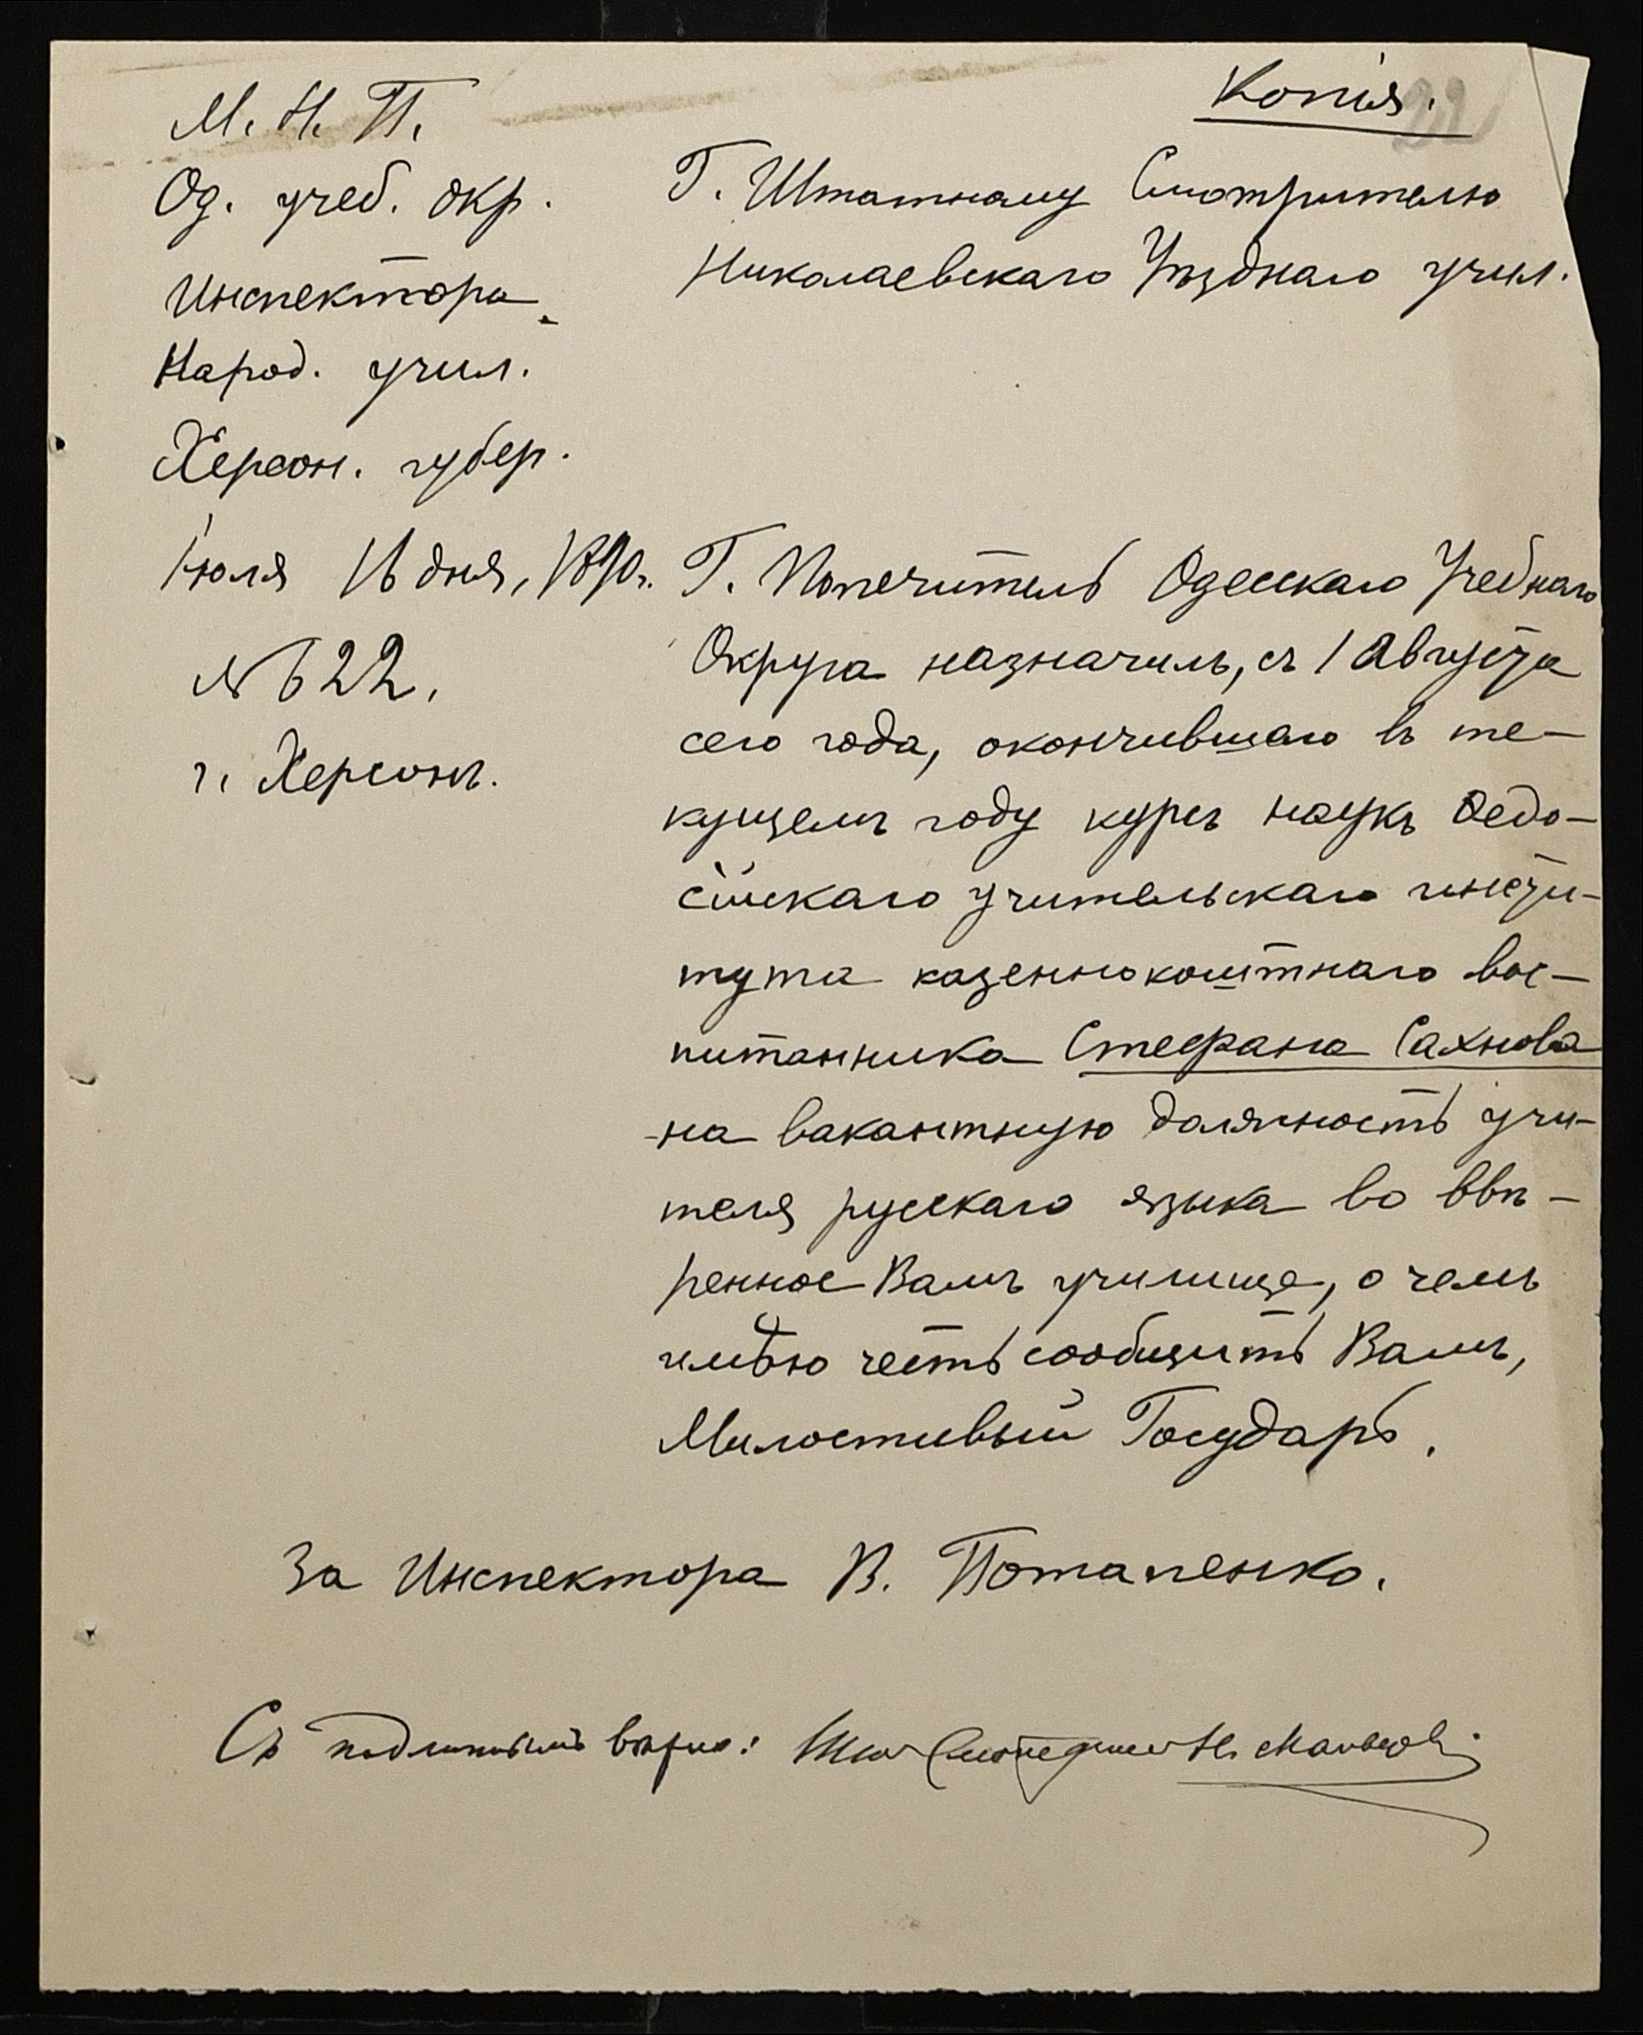 Копія.
М. Н. П.
Од. учеб. окр.
Инспектора
Народ. учил.
Херсон. губер.
Іюля 16 дня, 1890 г.
№ 622.
г. Херсонъ.
Г. Штатному Смотрителю
Николаевскаго Уѣзднаго учил.
Г. Попечитель Одесскаго Учебнаго
Округа назначилъ, съ 1 Августа
сего года, окончившаго въ те-
кущемъ году курсъ наукъ Ѳеодо-
сійскаго учительскаго инсти-
тута казеннокоштнаго вос-
питанника Стефана Сахнова
на вакантную должность учи-
теля русскаго языка во ввѣ-
ренное Вамъ училище, о чемъ
имѣю честь сообщить Вамъ,
Милостивый Государь.
За Инспектора В. Потапенко.
Съ подлиннымъ вѣрно: